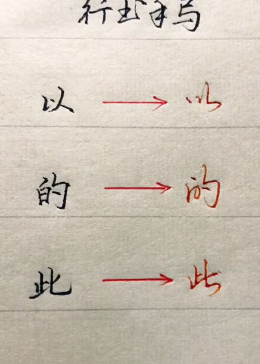 行书手写
以 → 以
的 → 的
此 → 此